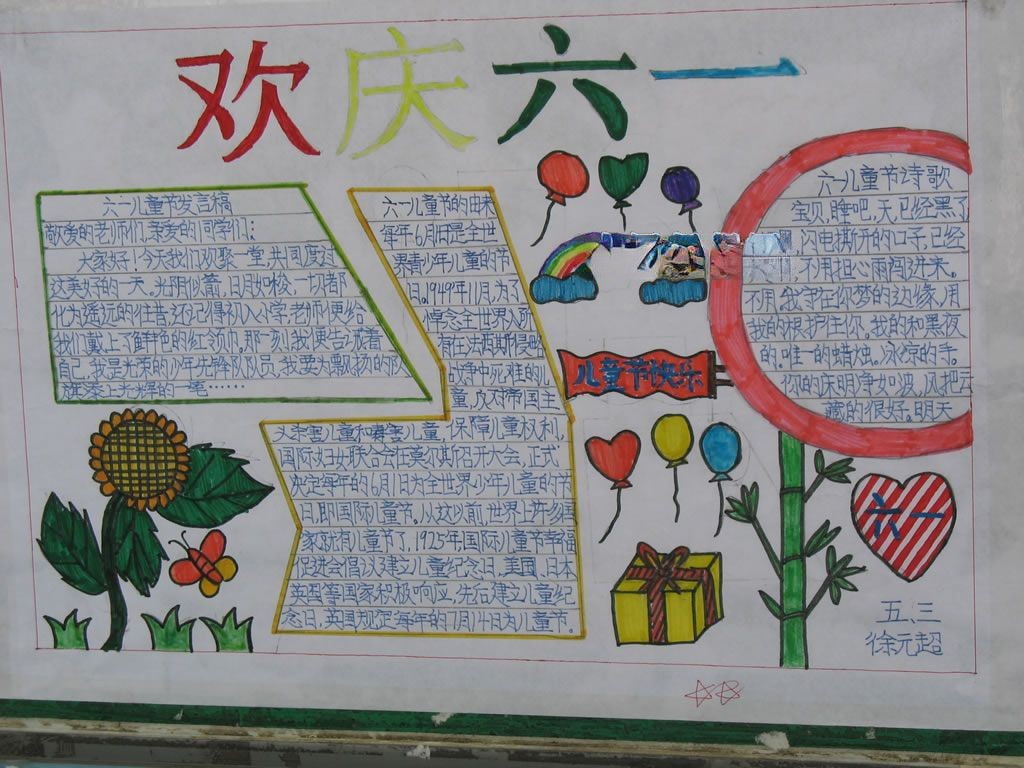 欢庆六一
六一儿童节发言稿
敬爱的老师们,亲爱的同学们:
大家好!今天我们欢聚一堂共同度过
这美好的一天。光阴似箭,日月如梭,一切都
化为遥远的往昔,还记得初入小学,老师便给
我们戴上了鲜艳的红领巾。那一刻,我便告诉着
自己,我是光荣的少年先锋队队员,我要为飘扬的队
旗添上光辉的一笔……
六一儿童节的由来
每年6月1日是全世
界青少年儿童的节
日。1949年11月,为了
悼念全世界人所
有在法西斯侵略
战争中死难的儿
童,反对帝国主
义杀害儿童和毒害儿童,保障儿童权利,
国际妇女联合会在莫尔斯召开大会,正式
决定每年的6月1日为全世界少年儿童的节
日,即国际儿童节。从这以前,世界上许多国
家就有儿童节了,1925年,国际儿童节幸福
促进会倡以建立儿童纪念日,美国、日本
英国等国家积极响应,先后建立儿童纪
念日,英国规定每年的7月14日为儿童节。
儿童节快乐
六一儿童节诗歌
宝贝,睡吧,天,已经黑了
闪电撕开的口子,已经
不用担心雨闯进来。
不用,我守在你梦的边缘,用
我的根护住你。我的和黑夜
的唯一的蜡烛。冰凉的手。
你的床明净如波,风把云
藏的很好。明天
六一
五、三
徐元超